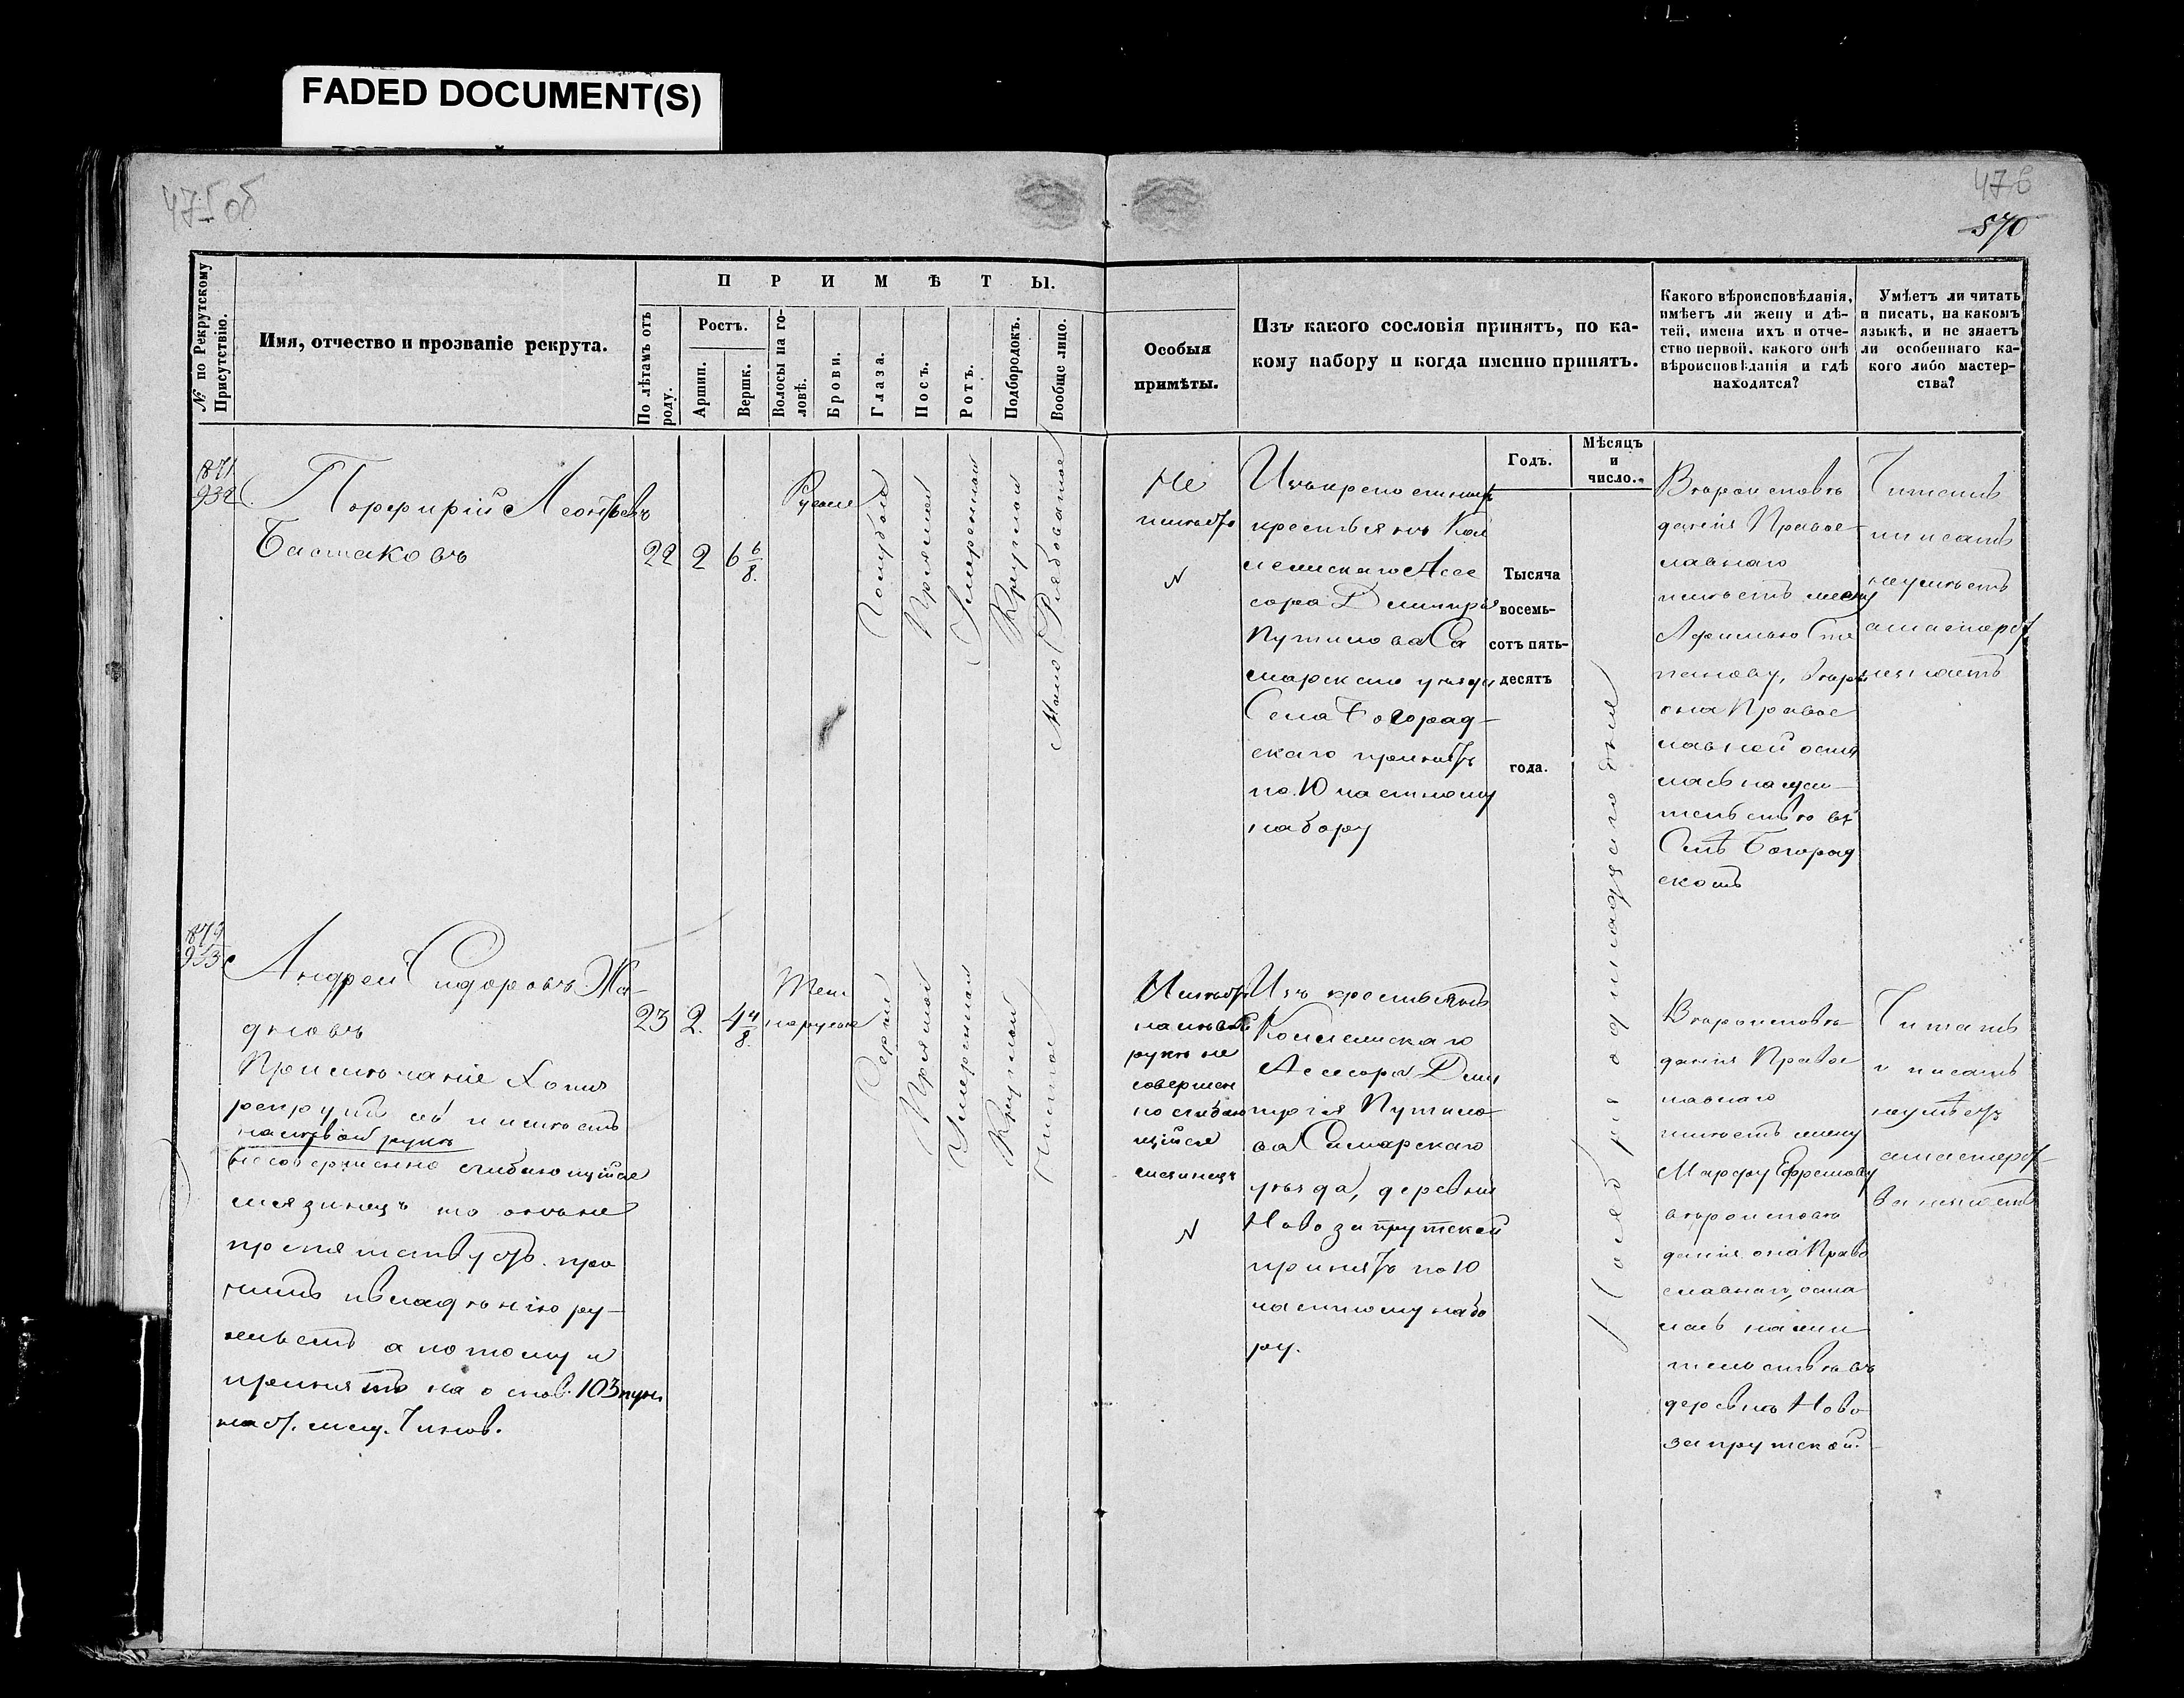 FADED DOCUMENT(S)
475 об
476
570
№ по Рекрутскому Присутствію.
Имя, отчество и прозваніе рекрута.
ПРИМѢТЫ.
По лѣтамъ отъ роду.
Ростъ.
Аршин.
Вершк.
Волосы на го-
ловѣ.
Брови.
Глаза.
Носъ.
Ротъ.
Подбородокъ.
Вообще лицо.
Особыя
примѣты.
Изъ какого сословія принятъ, по ка-
кому набору и когда именно принятъ.
Какого вѣроисповѣданія,
имѣетъ ли жену и дѣ-
тей, имена ихъ и отче-
ство первой, какого онѣ
вѣроисповѣданія и гдѣ
находятся?
Умѣетъ ли читать
и писать, на какомъ
языкѣ, и не знаетъ
ли особеннаго ка-
кого либо мастер-
ства?
Годъ.
Мѣсяцъ
и
число.
Тысяча
восемь-
сотъ пять-
десятъ
года.
871
932
Порфирій Леонтьевъ
Бастаковъ
22
2
6 6/8.
Русые
Голубые
Прямой
Умеренный
Круглой
Рябоватое
Не
имѣетъ
Изъ крепостныхъ
крестьянъ Кол
лежскаго Асес
сора Димитрія
Путилова Са
марскаго уѣзда
Села Богород-
скаго принятъ
по 10 частному
набору
Ноября одинадцатого дня
Вѣроисповѣ
данія Право-
славнаго
имѣетъ жену
Афимью Сте
панову, вѣры
она Право
славной оста
лась на жи-
тельствѣ въ
Селѣ Богород
скомъ
Читать
и писать
неумѣетъ
а мастерст
незнаетъ
933
Андрей Сидоровъ Жа-
дновъ
Примѣчаніе Хотя
рекрутъ сей и имѣетъ
на лѣвой рукѣ
несовершенно сгибающійся
мизинецъ но онъ не
препятствуетъ. при
чить къ владѣнію ру-
жьемъ а потому и
принятъ на основ. 103 пун.
наст. мед. Чинов.
23
2.
4 4/8
Темно
русые
Серые
Прямой
Умеренный
Круглой
Чистое
Имѣетъ
на лѣвой
рукѣ не
совершен
но сгибаю
щійся
мизинецъ
Изъ крестьянъ
Коллежскаго
Асессора Дим
итрія Путило-
ва Самарскаго
уѣзда, деревни
Новозапрутской
принятъ по 10
частному набо
ру.
Вѣроисповѣ-
данія Право
славнаго
имѣетъ жену
Марфу Ефремову
вѣроисповѣ
данія она Право
славнаго, оста
лась на жи
тельствѣ въ
деревнѣ Ново
запрутской.
Читать
и писать
неумѣетъ
а мастерст-
ва незнаетъ